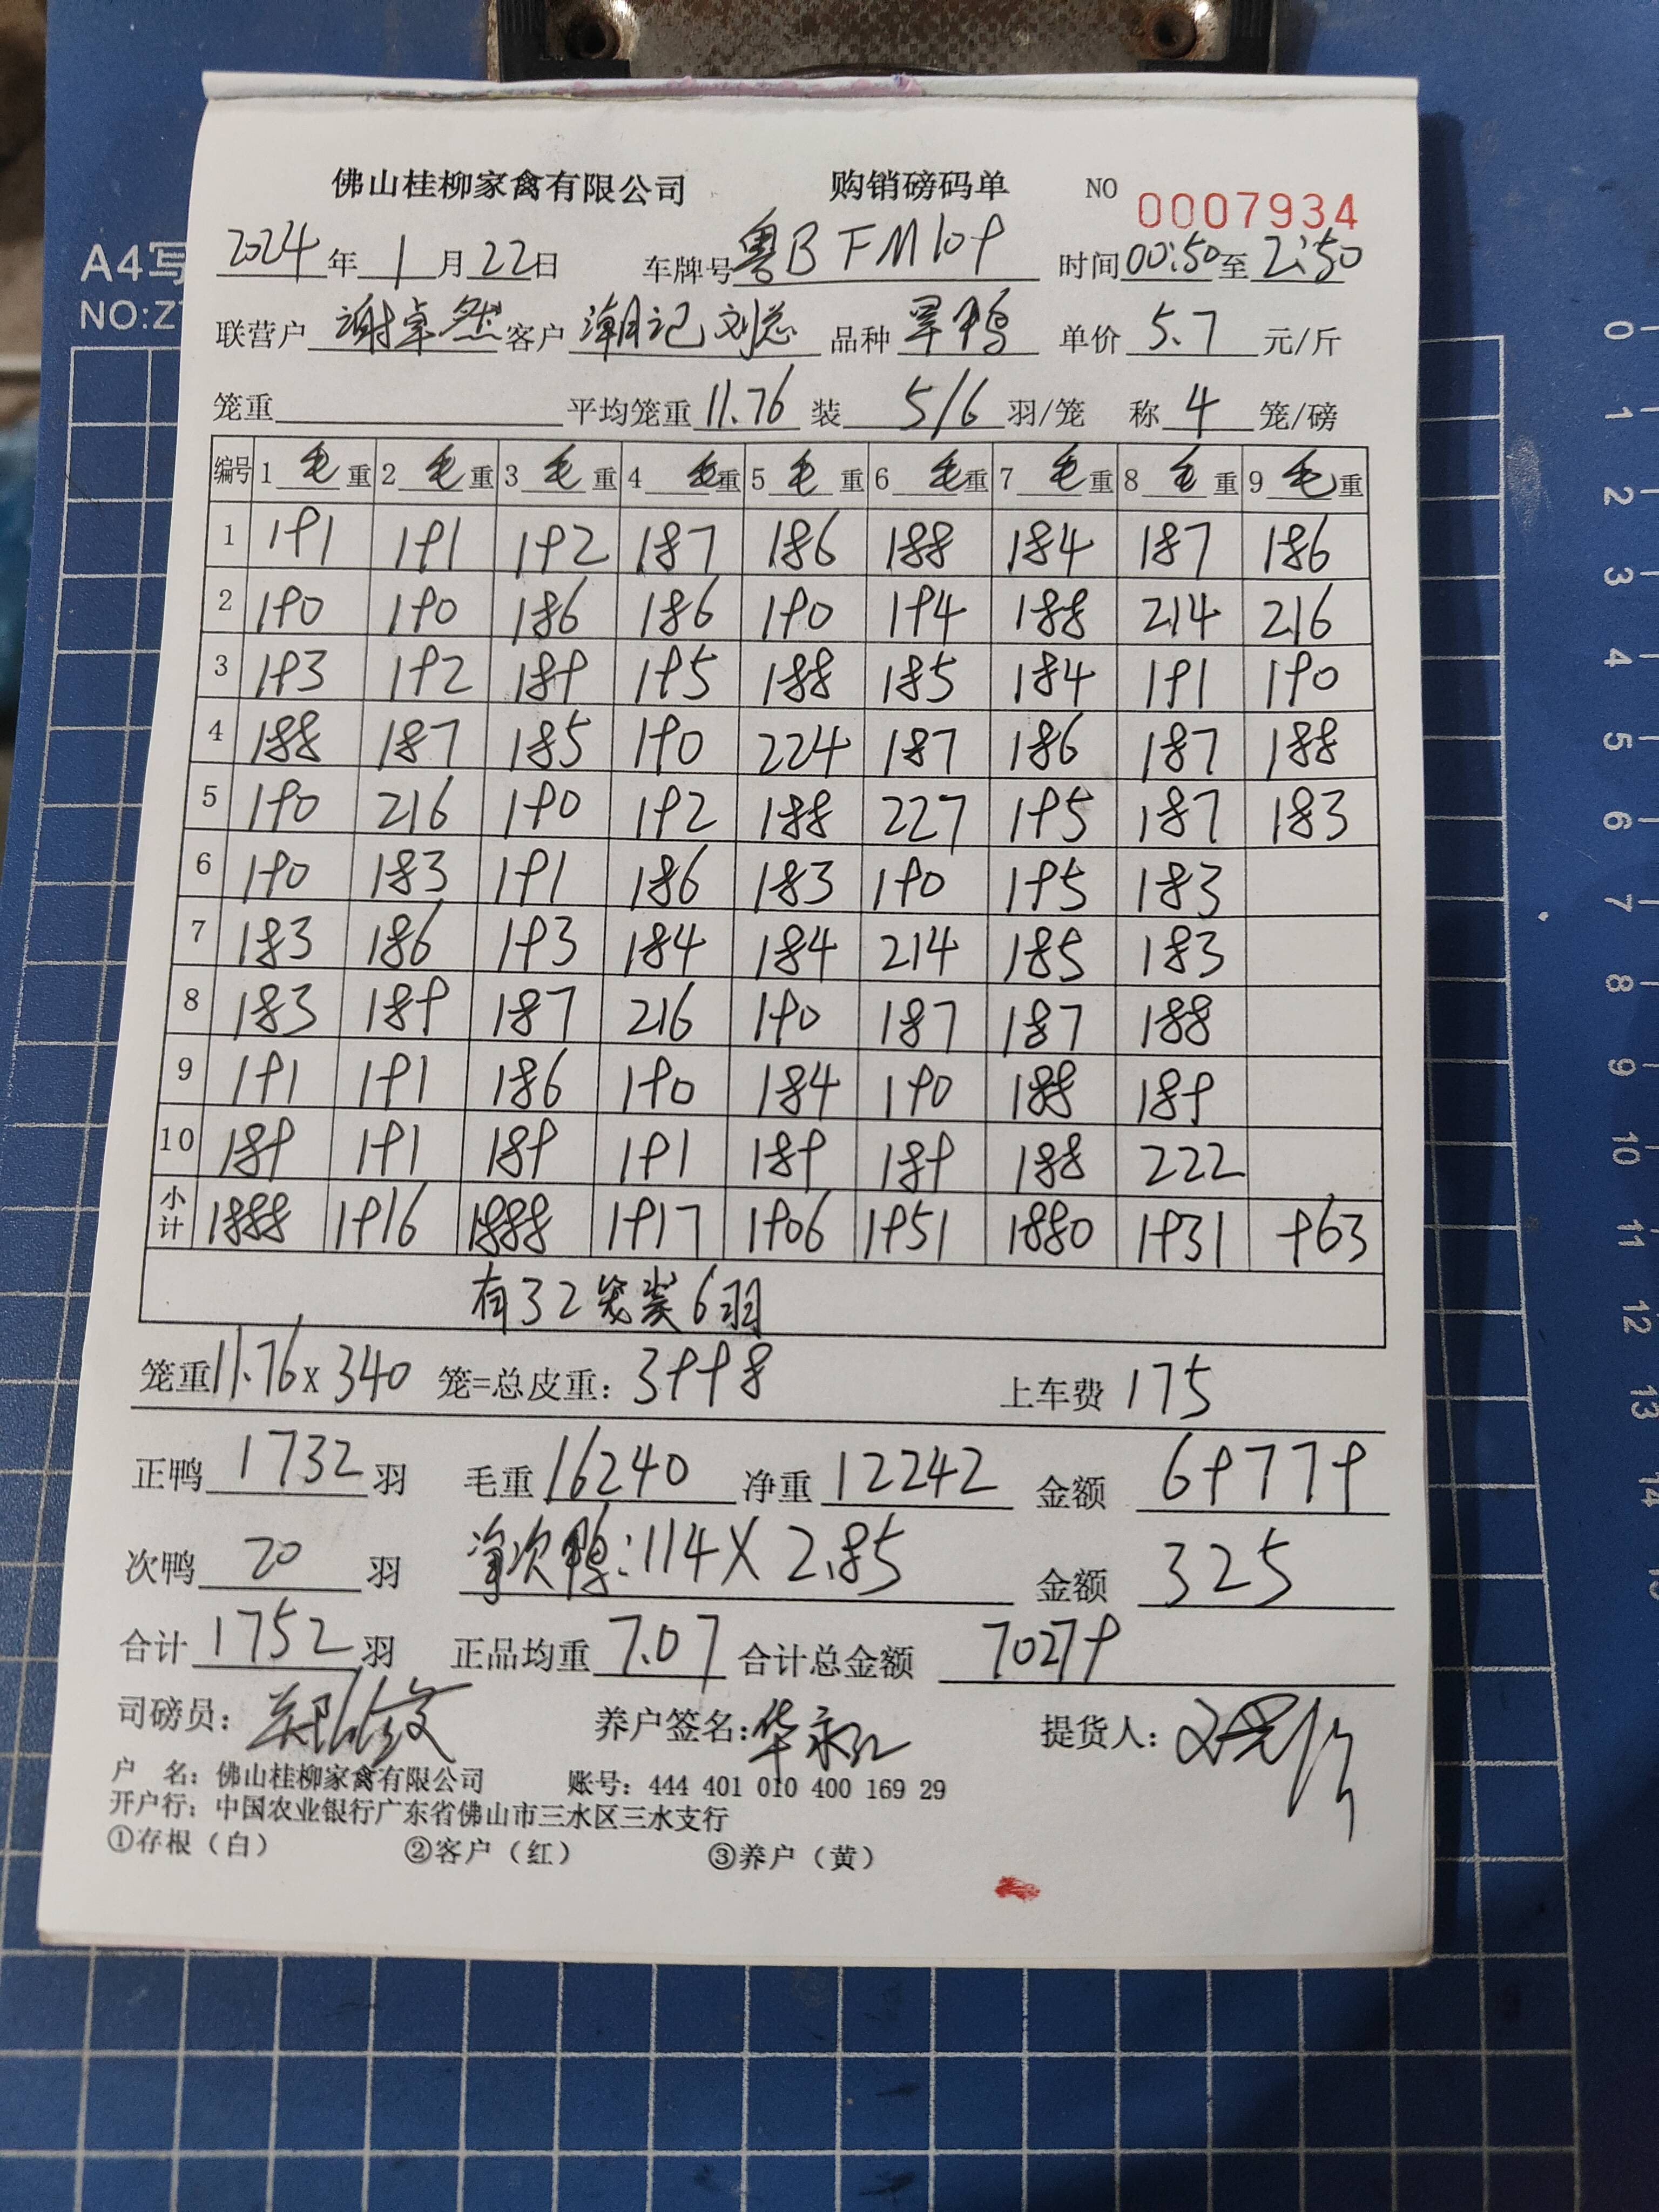 佛山桂柳家禽有限公司 购销磅码单 NO 0007934
A4写
NO:Z
2024年1月22日 车牌号粤BFM109 时间00:50至2:50
联营户 谢卓然 客户 潮记刘总 品种 旱鸭 单价 5.7 元/斤
笼重 平均笼重 11.76 装 5/6 羽/笼 称 4 笼/磅
编号 1 毛重 2 毛重 3 毛重 4 毛重 5 毛重 6 毛重 7 毛重 8 毛重 9 毛重
1 191 191 192 187 186 188 184 187 186
2 190 190 186 186 190 194 188 214 216
3 193 192 189 195 188 185 184 191 190
4 188 187 185 190 224 187 186 187 188
5 190 216 190 192 188 227 195 187 183
6 190 183 191 186 183 190 195 183
7 183 186 193 184 184 214 185 183
8 183 189 187 216 190 187 187 188
9 191 191 186 190 184 190 188 189
10 189 191 189 191 189 189 188 222
小计 1888 1916 1888 1917 1906 1951 1880 1931 963
有32笼装6羽
笼重11.76x340 笼=总皮重：3998 上车费 175
正鸭 1732 羽 毛重 16240 净重 12242 金额 69779
次鸭 20 羽 净次鸭:114X2.85 金额 325
合计 1752 羽 正品均重 7.07 合计总金额 70279
司磅员： 养户签名： 华永江 提货人：
户 名：佛山桂柳家禽有限公司 账号：444 401 010 400 169 29
开户行：中国农业银行广东省佛山市三水区三水支行
①存根（白） ②客户（红） ③养户（黄）
0
1
2
3
4
5
6
7
8
9
10
11
12
13
14
15